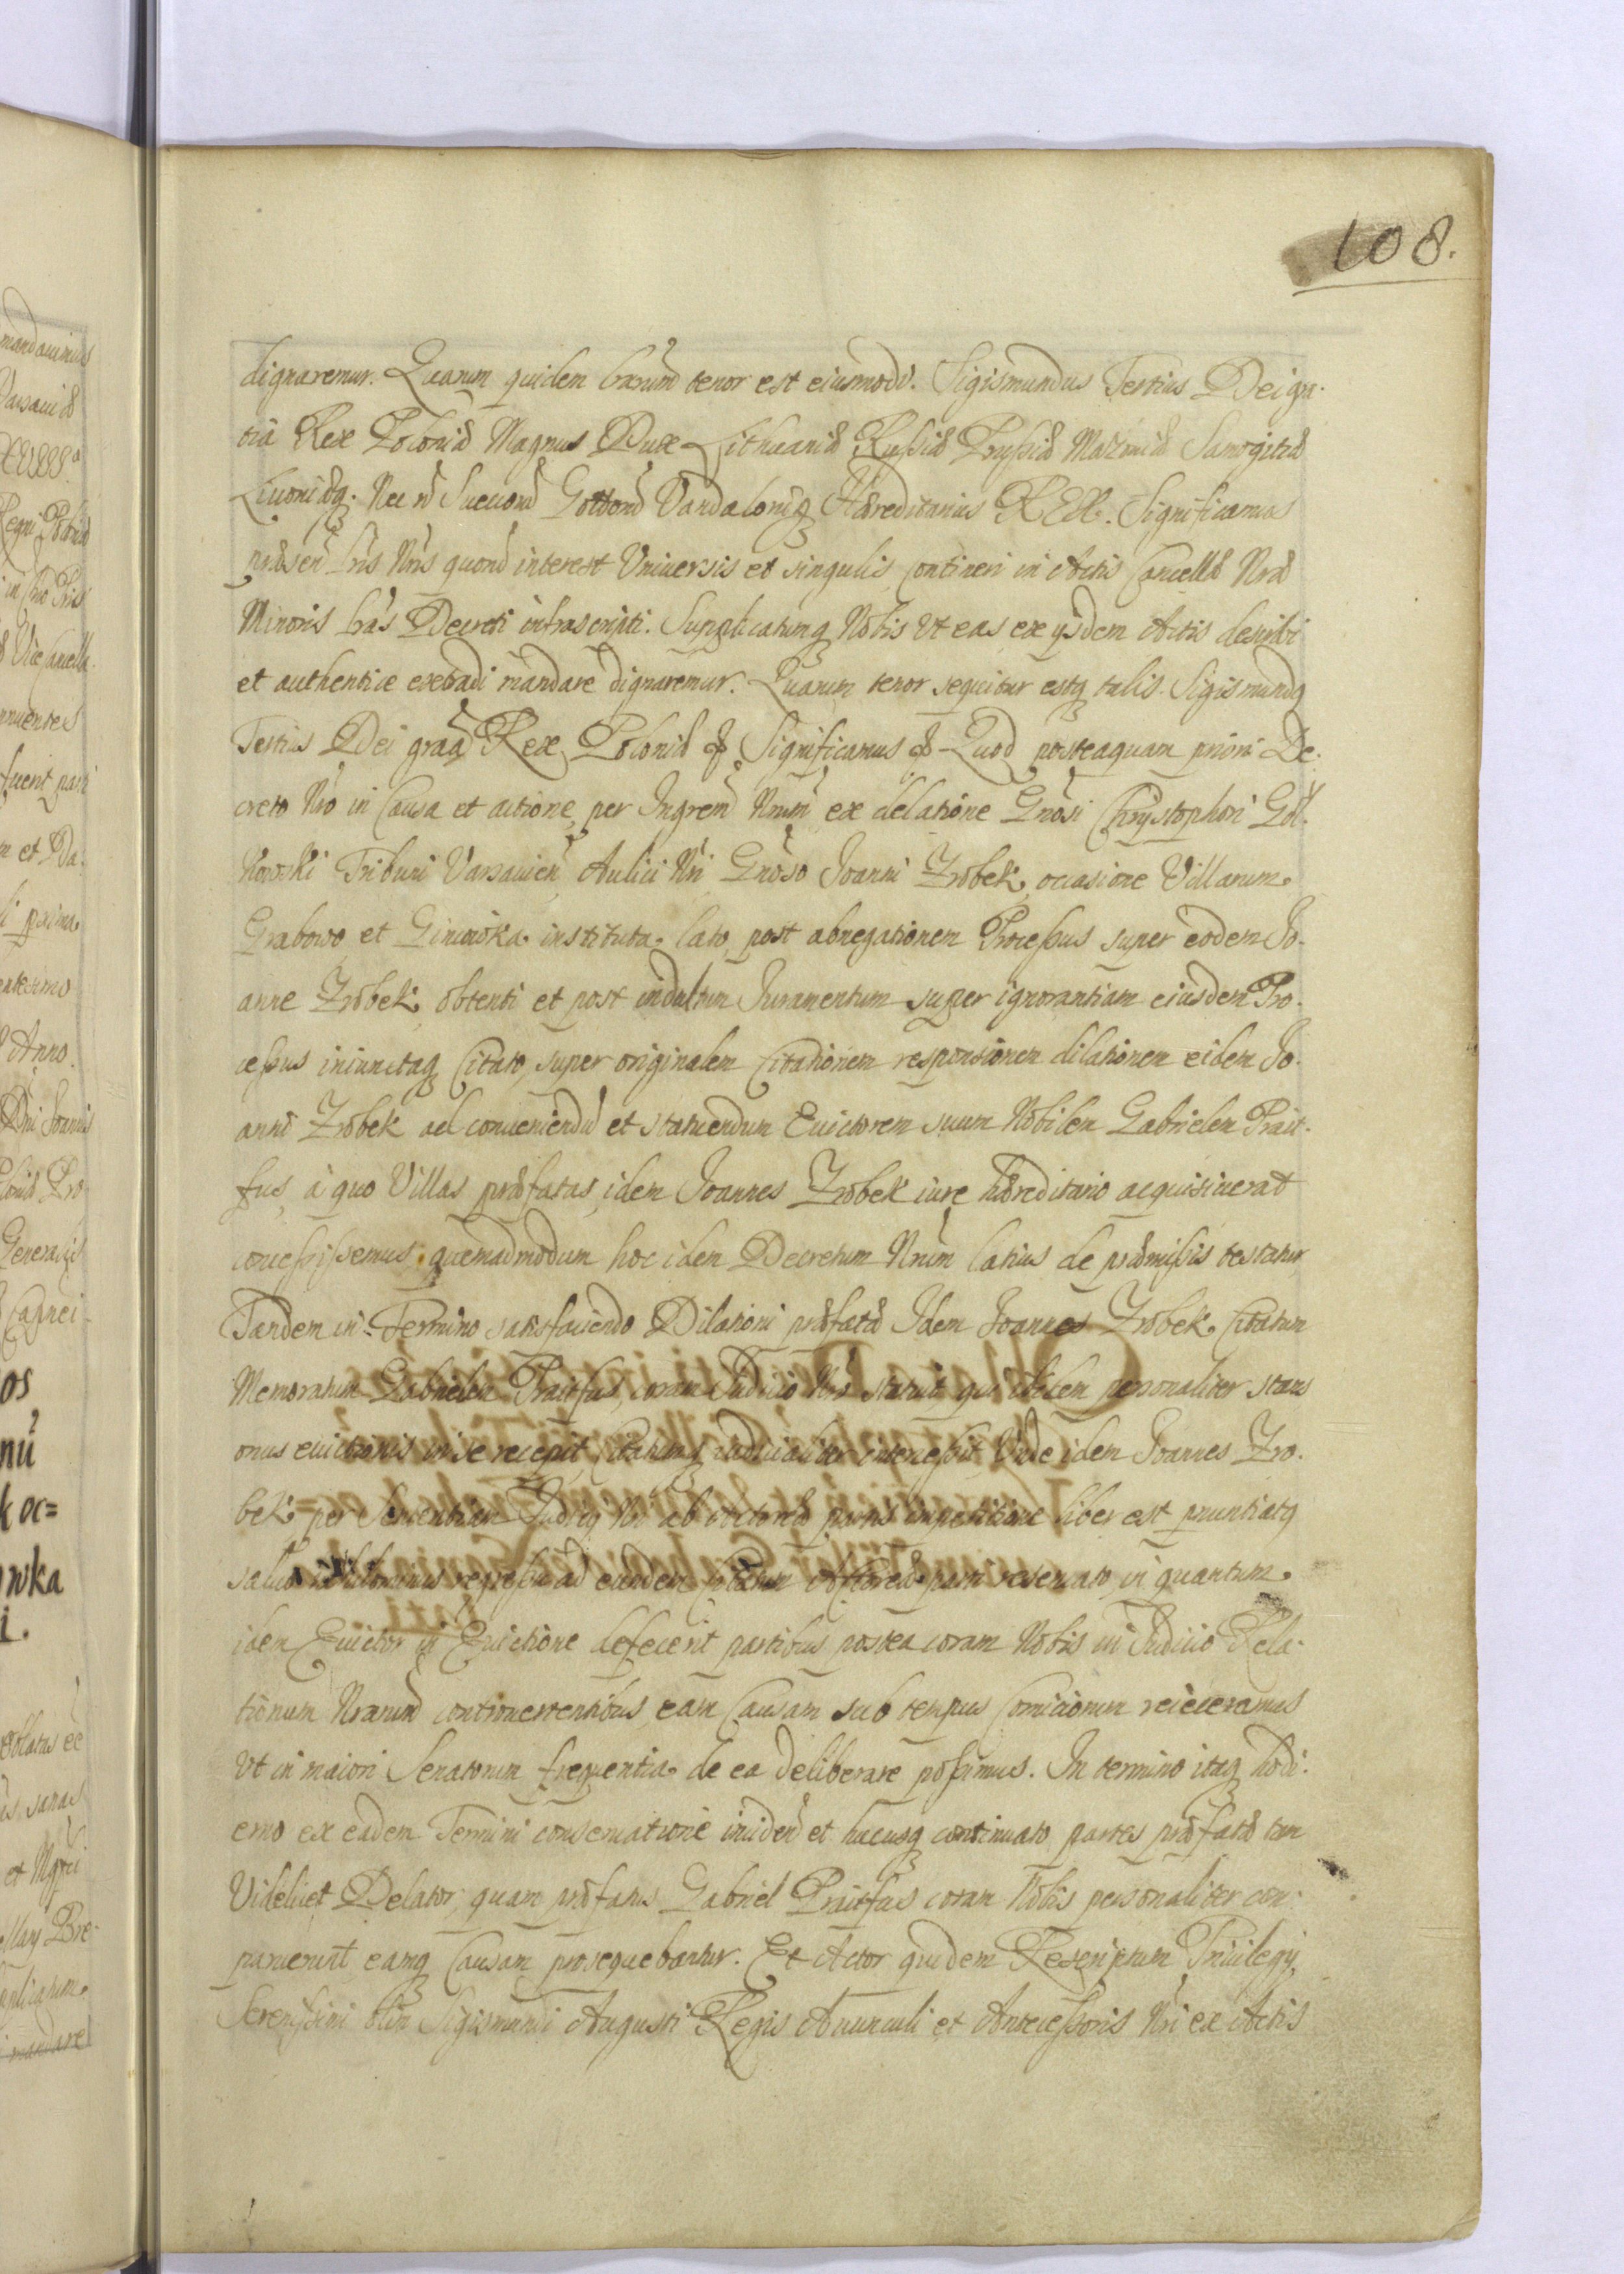 108.
dignaremur. Quarum quidem lrarum tenor est eiusmodi. Sigismundus Tertius Dei gra-
tia Rex Poloniæ Magnus Dux Lithuaniæ Russiæ Prussiæ Mazouiæ Samogitiæ
Liuoniæq. Nec nō Sueuorū Gottorū Vandalorūq Hæreditarius REX. Significamus
præsen lris Nris quorū interest Vniuersis et singulis contineri in Actis Cancellæ Nræ
Minoris lras Decreti infrascripti. Supplicatumq Nobis vt eas ex ijsdem Actis describi
et authentice extradi mandare dignaremur. Quarum tenor sequitur estq talis. Sigismundq
Tertius Dei graā Rex Poloniæ & Significamus & Quod posteaquam priori De-
creto Nro in Causa et actione, per Ingrem Nrum ex delatione Gnosi Chrystophori Goł-
Nowski Tribuni Varsauien Aulici Nri Gnoso Joanni Zrobek, occasione Villarum
Grabowo et Giniewka instituta lato, post abnegationem Processus super eodem Jo-
anne Zrobek obtenti et post indultum Juramentum super ignorantiam eiusdem Pro-
cessus iniunctaq Citato, super originalem Citationem responsionem dilationem eidem Jo-
anni Zrobek ad conueniendū et statuendum Euictorem suum Nobilem Gabrielem Prait-
fus, à quo Villas præfatas, idem Joannes Zrobek iure hæreditario acquisiuerat
concessissemus, quemadmodum hoc idem Decretum Nrum latius de præmissis testatur
Tandem in Termino satisfaciendo Dilationi præfatæ Idem Joannes Zrobek Citatum
Memoratum Gabrielem Praitfus, coram Judicio Nro statuit, qui ibidem personaliter stans
onus euictionis in se recepit, Citatumq iudicialiter intercessit, Vnde idem Joannes Zro-
bek per Sententiam Judicij Nri ab Actoreæ partis impetitione liber est pruntiatq
saluo regressu ad eundem Citatum Actoreæ parti reseruato, in quantum
idem Euictor in Euictione defecerit partibus postea coram Nobis in Judicio Rela-
tionum Nrarum controuertentibus, eam Causam sub tempus Comitiorum reieceramus
vt in maiori Senatorum frequentia de ea deliberare possimus. In termino itaq hodi-
erno ex eadem Termini conseruatione inciden et hucusq continuato partes præfatæ tam
Videlicet Delator, quam præfatus Gabriel Praitfus coram Nobis personaliter com-
paruerunt, eamq Causam prosequebantur. Et Actor quidem Rescriptum Priuilegij
Serenissimi olim Sigismundi Augusti Regis Auunculi et Antecessoris Nri ex Actis